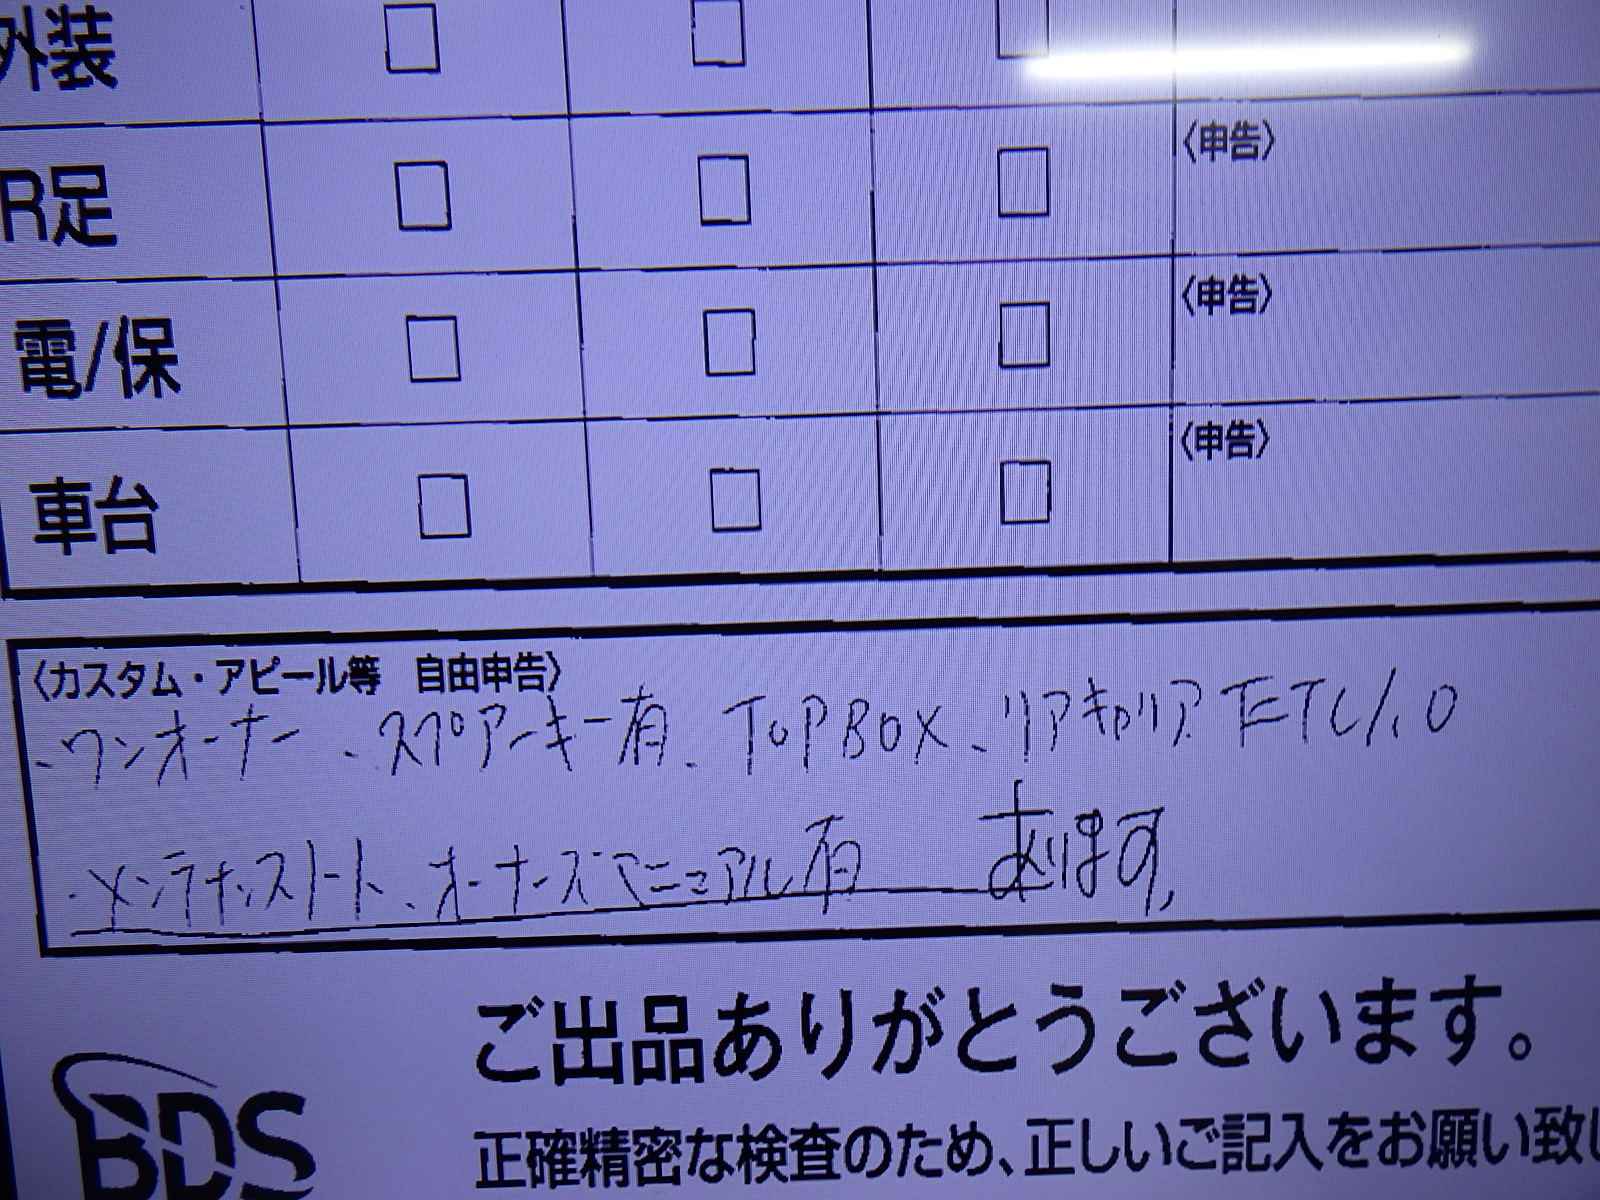 外装
R足 〈申告〉
電/保 〈申告〉
車台 〈申告〉
〈カスタム・アピール等 自由申告〉
・ワンオーナー、スペアーキー有、TOPBOX、リアキャリア ETC1.0
・メンテナンスノート、オーナーズマニュアル有 あります、
ご出品ありがとうございます。
BDS
正確精密な検査のため、正しいご記入をお願い致し